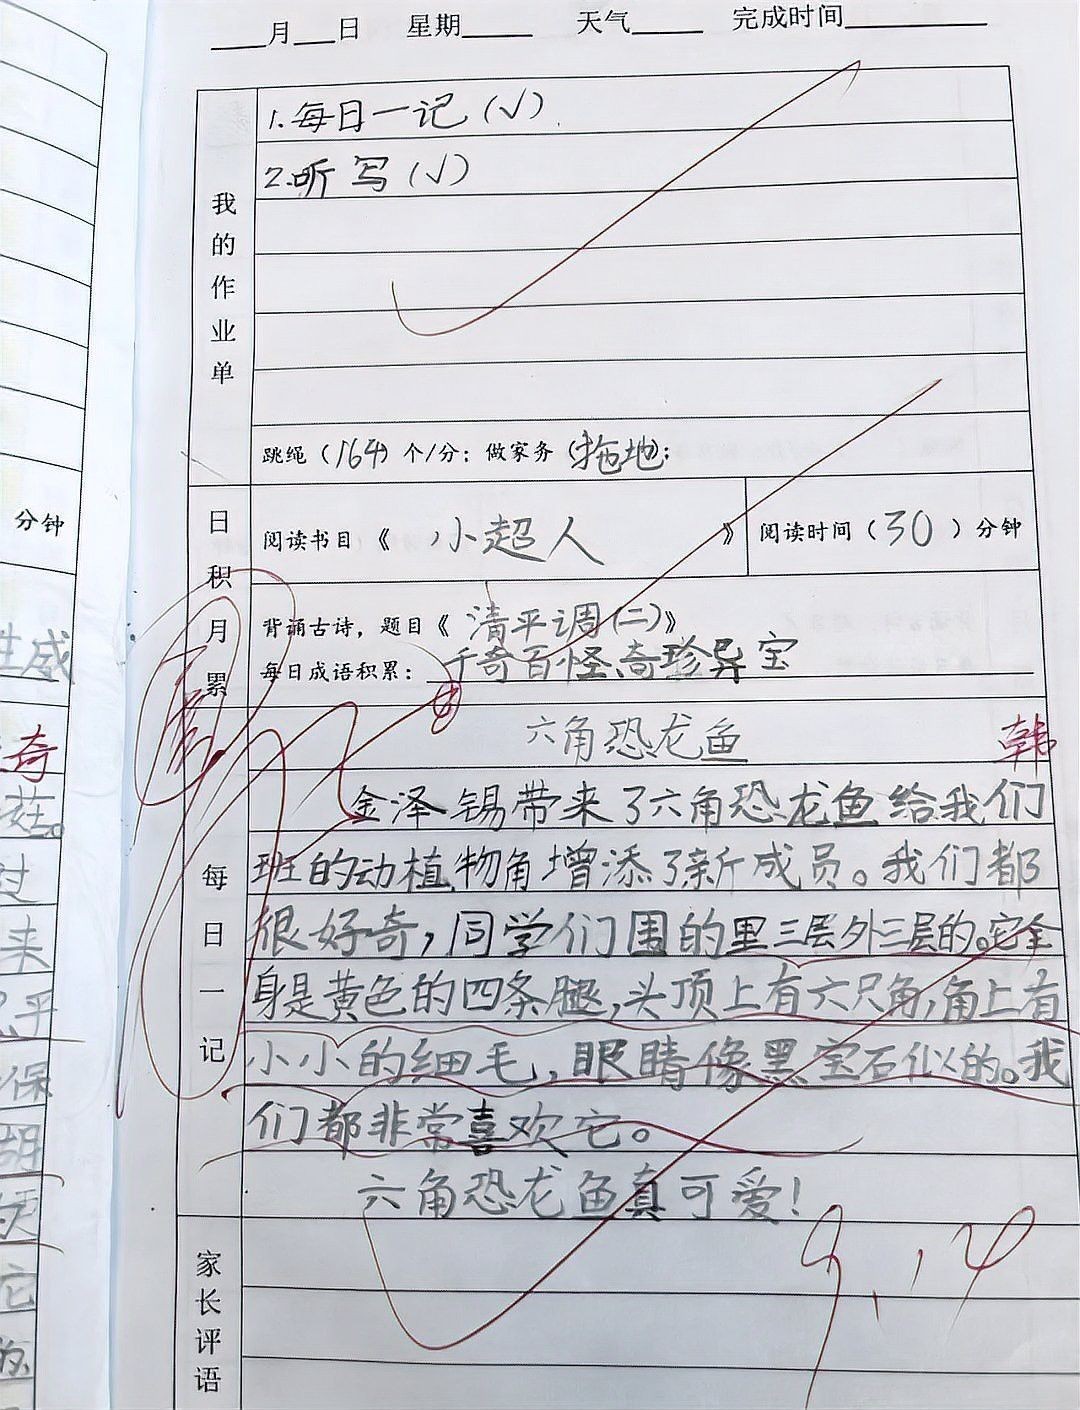 ___月___日 星期_____ 天气_____ 完成时间__________
我的作业单
1.每日一记(√)
2.听写(√)
跳绳(164)个/分;做家务(拖地);
日积月累
阅读书目《小超人》 阅读时间(30)分钟
背诵古诗,题目《清平调(二)》
每日成语积累:千奇百怪、奇珍异宝
六角恐龙鱼
韩
每日一记
金泽锡带来了六角恐龙鱼给我们
班的动植物角增添了新成员。我们都
很好奇,同学们围的里三层外三层的。它全
身是黄色的四条腿,头顶上有六只角,角上有
小小的细毛,眼睛像黑宝石似的。我
们都非常喜欢它。
六角恐龙鱼真可爱!
家长评语
9.14
分钟
威
奇
过
来
平
保
胡
它